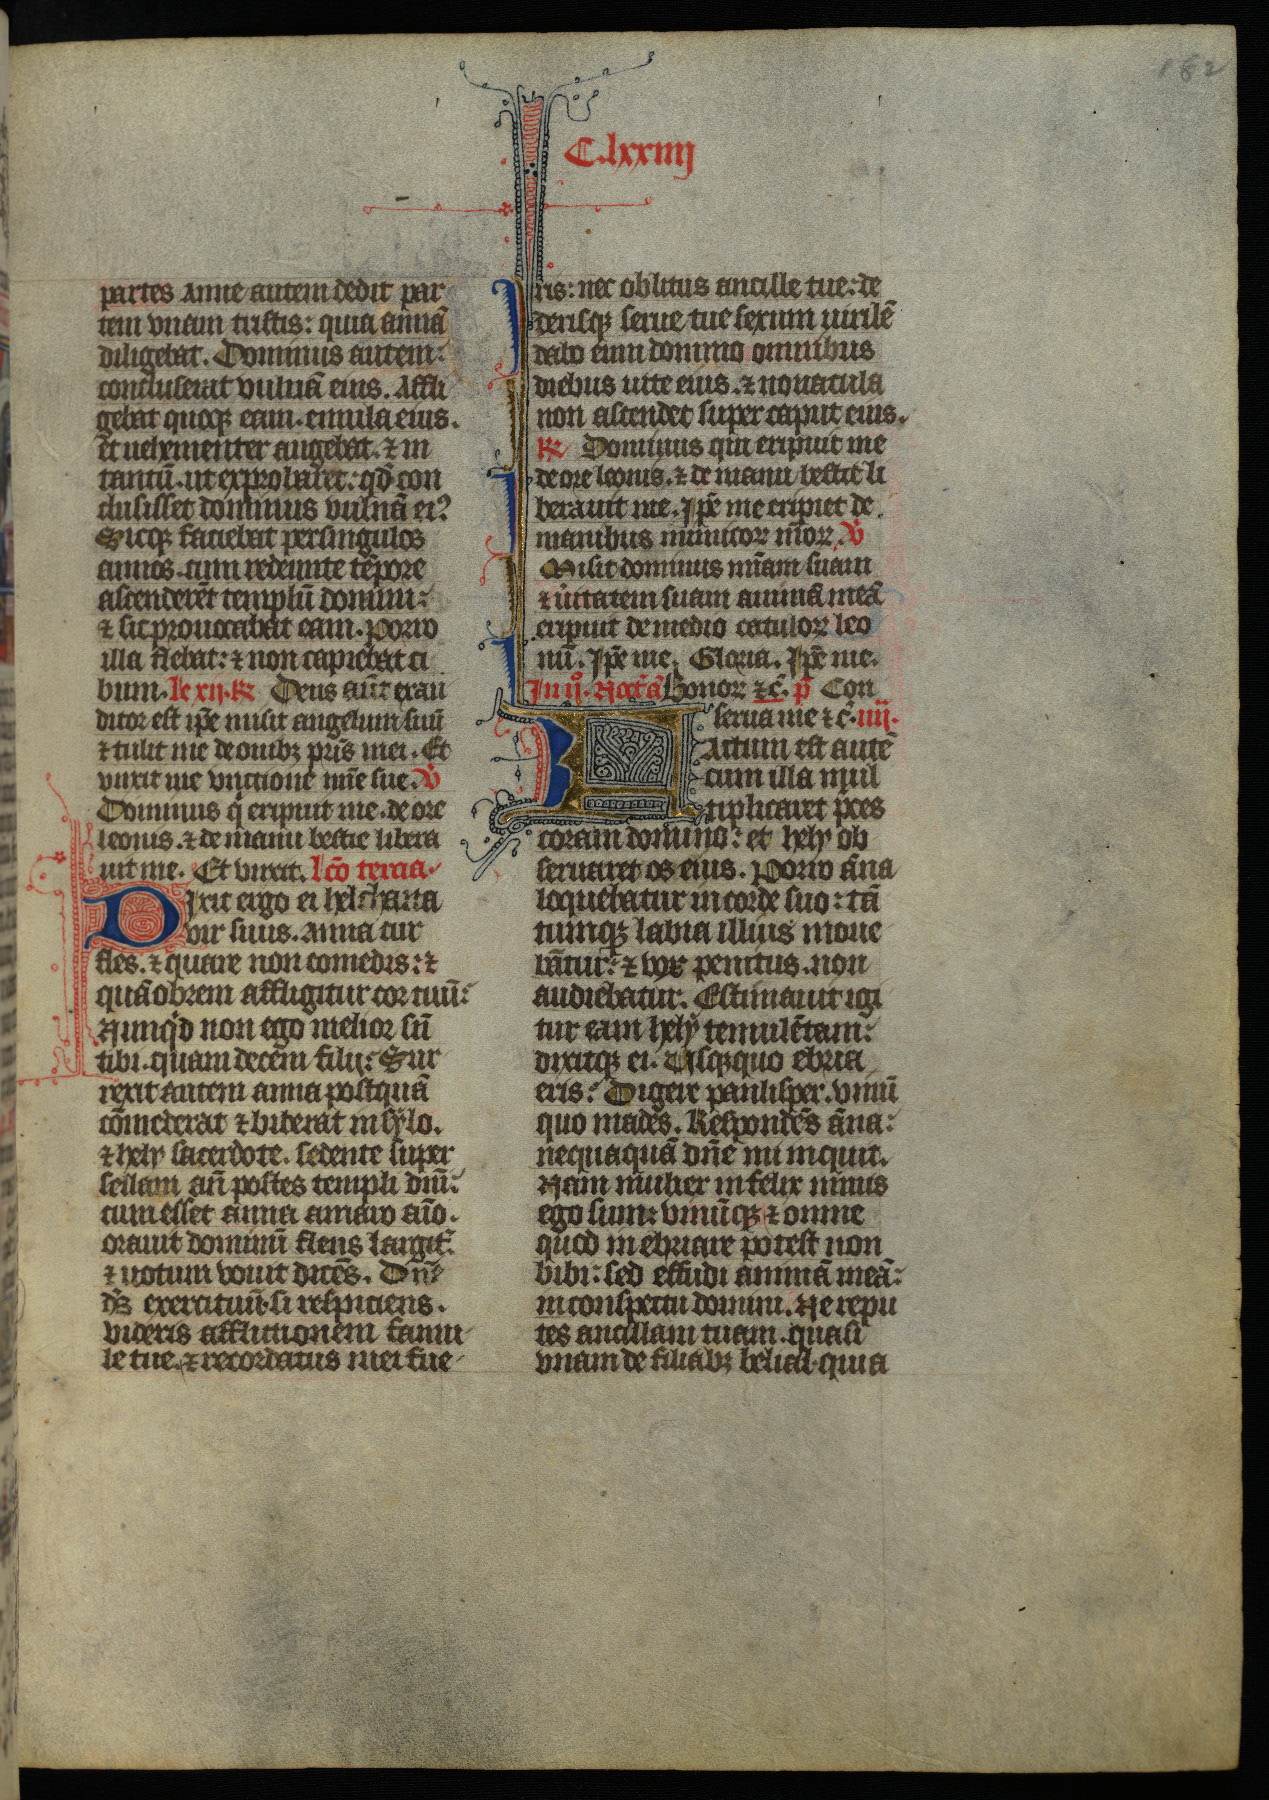 182
C.lxxiiij
partes Anne autem dedit par
tem vnam tristis: quia annā
diligebat. Dominus autem:
concluserat vuluā eius. Affli
gebat quoqꝫ eam. emula eius.
et uehementer angebat. ⁊ in
tantū. ut exprobaret: qđ con
clusisset dominus vuluā ei?
Sicqꝫ faciebat per singulos
annos. cum redeunte tēpore
ascenderēt templū domini:
⁊ sic prouocabat eam. Porro
illa flebat: ⁊ non capiebat ci
bum. le xij. R Deus aūt exau
ditor est ip̄e misit angelum suū
⁊ tulit me de ouibꝫ pr̄is mei. Et
vnxit me vnctione m̄ie sue. V̄
Dominus q̇ eripuit me. de ore
leonis. ⁊ de manu bestie libera
uit me. Et vnxit. lc̄o tercia.
Dixit ergo ei helchana
vir suus. Anna cur
fles. ⁊ quare non comedis: ⁊
quā obrem affligitur cor tuū:
Nunqđ non ego melior sū
tibi. quam decem filij: Sur
rexit autem anna postquā
cōmederat ⁊ biberat in sylo.
⁊ hely sacerdote. sedente super
sellam an̄ postes templi dn̄i:
cum esset anna amaro aīo.
orauit dominū flens largit̄.
⁊ uotum vouit dicēs. Dn̄e
dꝫ exercituū. si respiciens.
videris afflictionem famu
le tue. ⁊ recordatus mei fue
ris: nec oblitus ancille tue: de
derisqꝫ serue tue sexum uirilē
dabo eum domino omnibus
diebus uite eius. ⁊ nouacula
non ascendet super caput eius.
R Dominus qui eripuit me
de ore leonis. ⁊ de manu bestie li
berauit me. Ip̄e me eripiet de
manibus inimicoꝝ m̄oꝝ V̄
Misit dominus m̄iam suam
⁊ ūitatem suam animā meā
eripuit de medio catuloꝝ leo
nū. Ip̄e me. Gloria. Ip̄e me.
In ij°. Noct̄a Bonoꝝ ⁊c̄. p̄ Con
serua me ⁊ c̄. iiij.
Factum est autē
cum illa mul
tiplicaret p̄ces
coram domino: et hely ob
seruaret os eius. Porro āna
loquebatur in corde suo: tā
tumqꝫ labia illius moue
bātur: ⁊ vox penitus. non
audiebatur. Estimauit igi
tur eam hely temulētam:
dixitqꝫ ei. Vsqꝫquo ebria
eris: Digere paulisper. vinū
quo mades. Respondēs āna:
nequaquā dn̄e mi inquit.
Nam mulier infelix nimis
ego sum: vinūqꝫ ⁊ omne
quod inebriare potest non
bibi: sed effudi animā meā:
in conspectu domini. Ne repu
tes ancillam tuam. quasi
vnam de filiabꝫ belial. quia